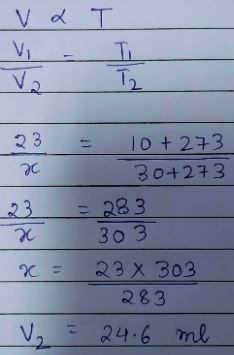 V ∝ T
V₁/V₂ = T₁/T₂
23/x = 10+273/30+273
23/x = 283/303
x = 23×303/283
V₂ = 24.6 ml